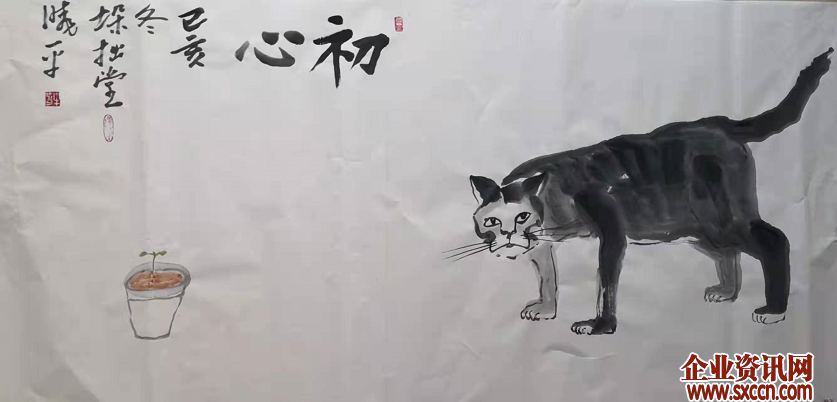 初心
己亥
冬
垛拙堂
晓平
企业资讯网
www.sxccn.com